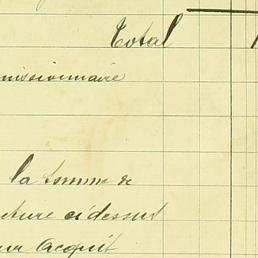 Total
missionnaire
la somme de
cture ci dessus
our acquit